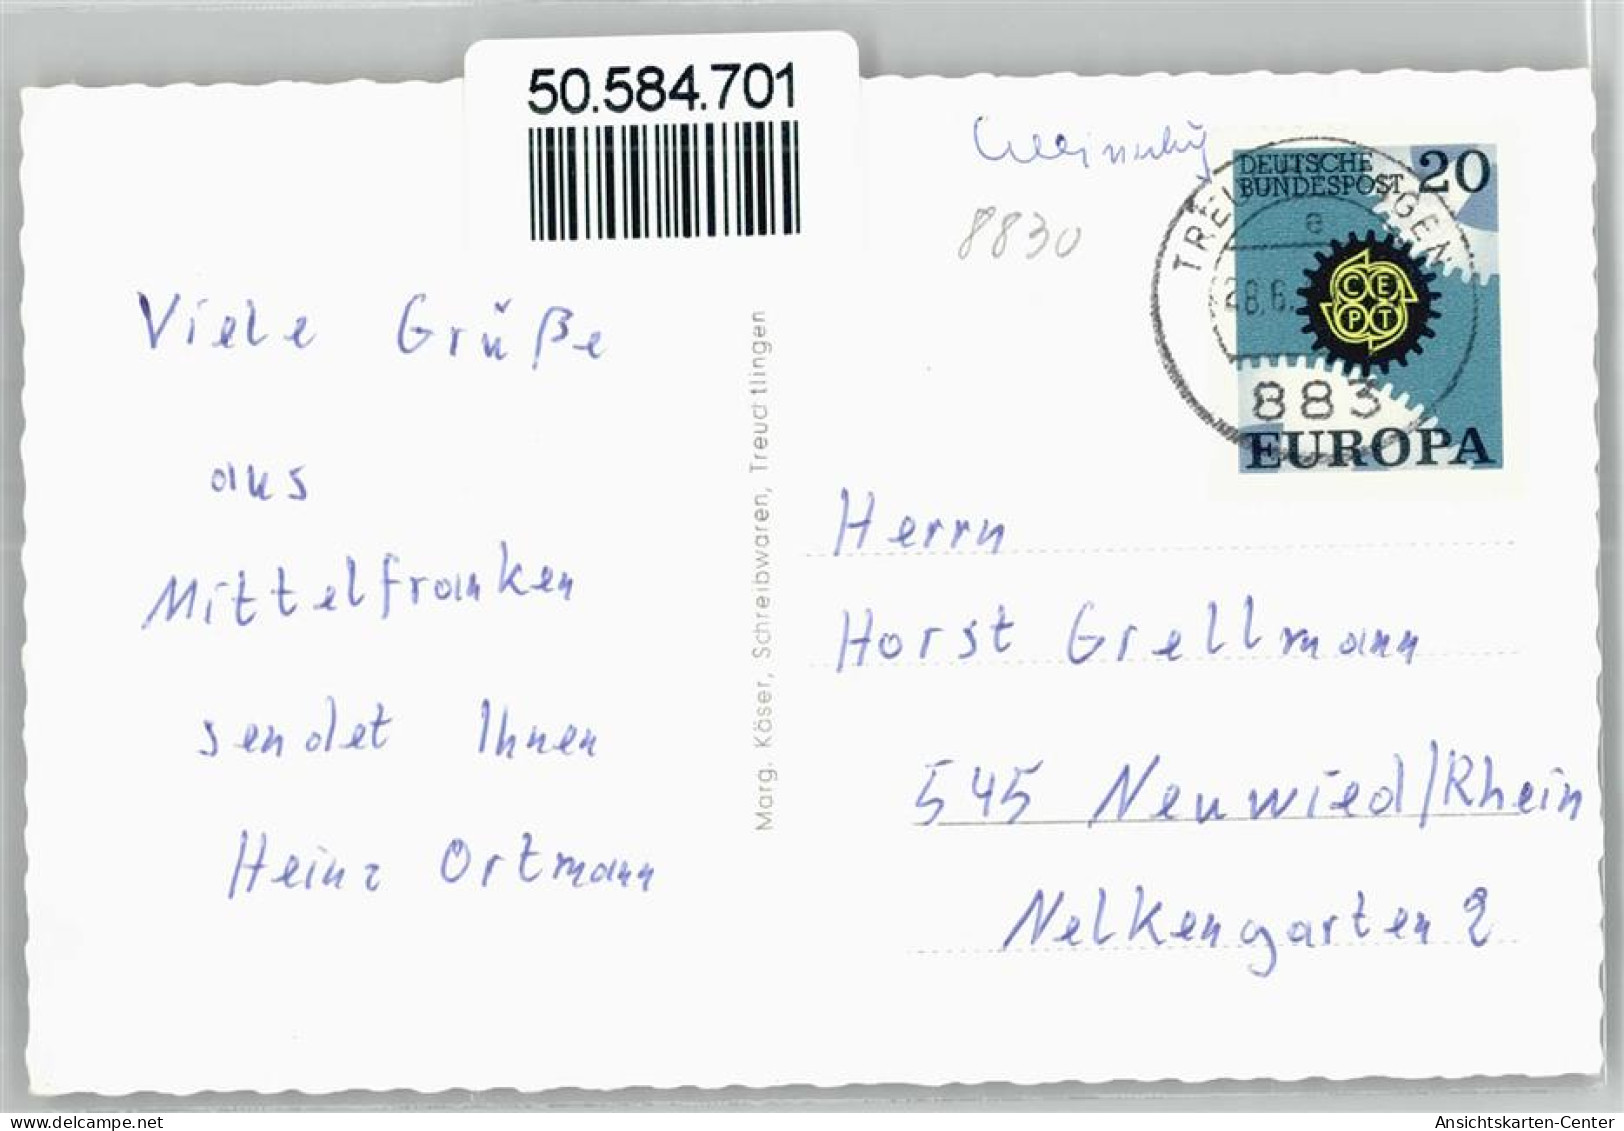 50.584.701
8830
DEUTSCHE
BUNDESPOST 20
e
28.6.
CEPT
883
EUROPA
Viele Grüße
aus
Mittelfranken
sendet Ihnen
Heinz Ortmann
Marg. Käser, Schreibwaren, Treuchtlingen
Herrn
Horst Grellmann
545 Neuwied/Rhein
Nelkengarten 2
delcampe.net
Ansichtskarten-Center